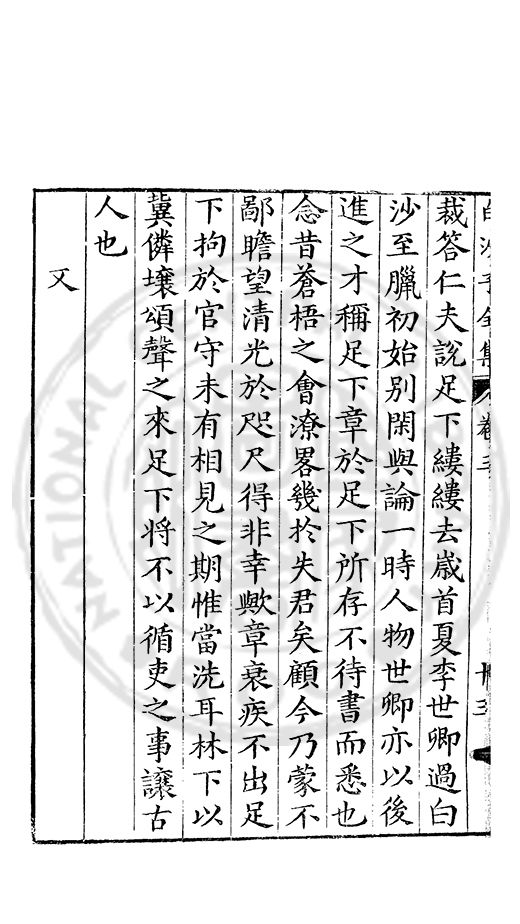 白沙子全集 卷三 卅五
裁答仁夫說足下縷縷去歲首夏李世卿過白
沙至臘初始別閑與論一時人物世卿亦以後
進之才稱足下章於足下所存不待書而悉也
念昔蒼梧之會潦畧幾於失君矣顧今乃蒙不
鄙瞻望清光於咫尺得非幸歟章衰疾不出足
下拘於官守未有相見之期惟當洗耳林下以
冀僯壤頌聲之來足下將不以循吏之事讓古
人也
又
NATIONAL